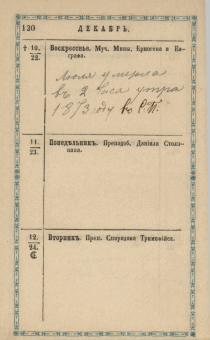 120 ДЕКАБРЬ.
† 10. Воскресенье. Муч. Мины, Ермогена и Ев-
22. графа.
умерла
въ 2 часа утра
1873 году въ
11. Понедѣльникъ. Преподоб. Даніила Столп-
23. ника.
12. Вторникъ. Преп. Спиридона Тримифійск.
24.